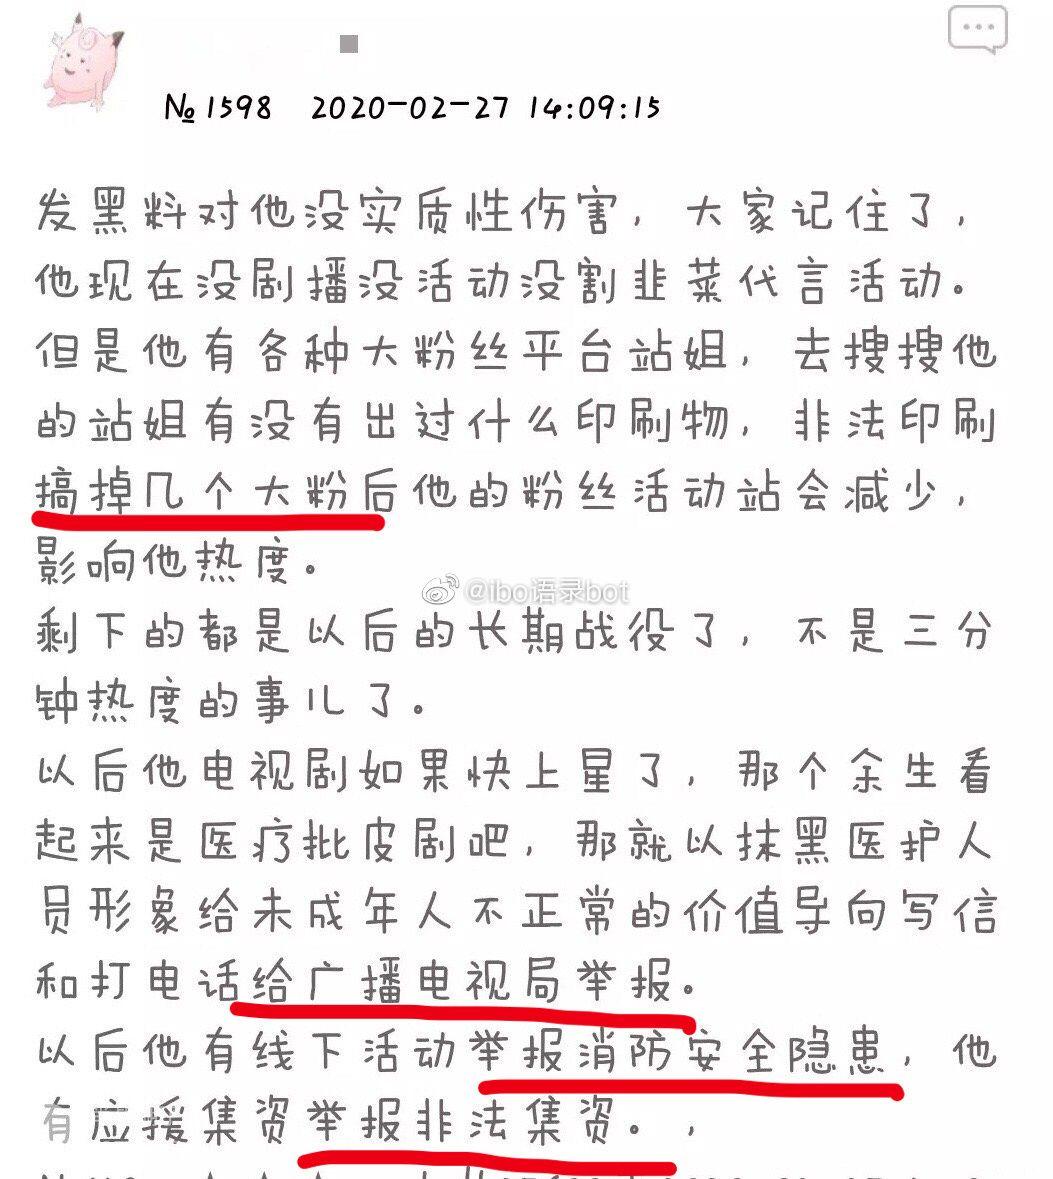 №1598 2020-02-27 14:09:15
发黑料对他没实质性伤害，大家记住了，
他现在没剧播没活动没割韭菜代言活动。
但是他有各种大粉丝平台站姐，去搜搜他
的站姐有没有出过什么印刷物，非法印刷
搞掉几个大粉后他的粉丝活动站会减少，
影响他热度。
@lbo语录bot
剩下的都是以后的长期战役了，不是三分
钟热度的事儿了。
以后他电视剧如果快上星了，那个余生看
起来是医疗批皮剧吧，那就以抹黑医护人
员形象给未成年人不正常的价值导向写信
和打电话给广播电视局举报。
以后他有线下活动举报消防安全隐患，他
有应援集资举报非法集资。，